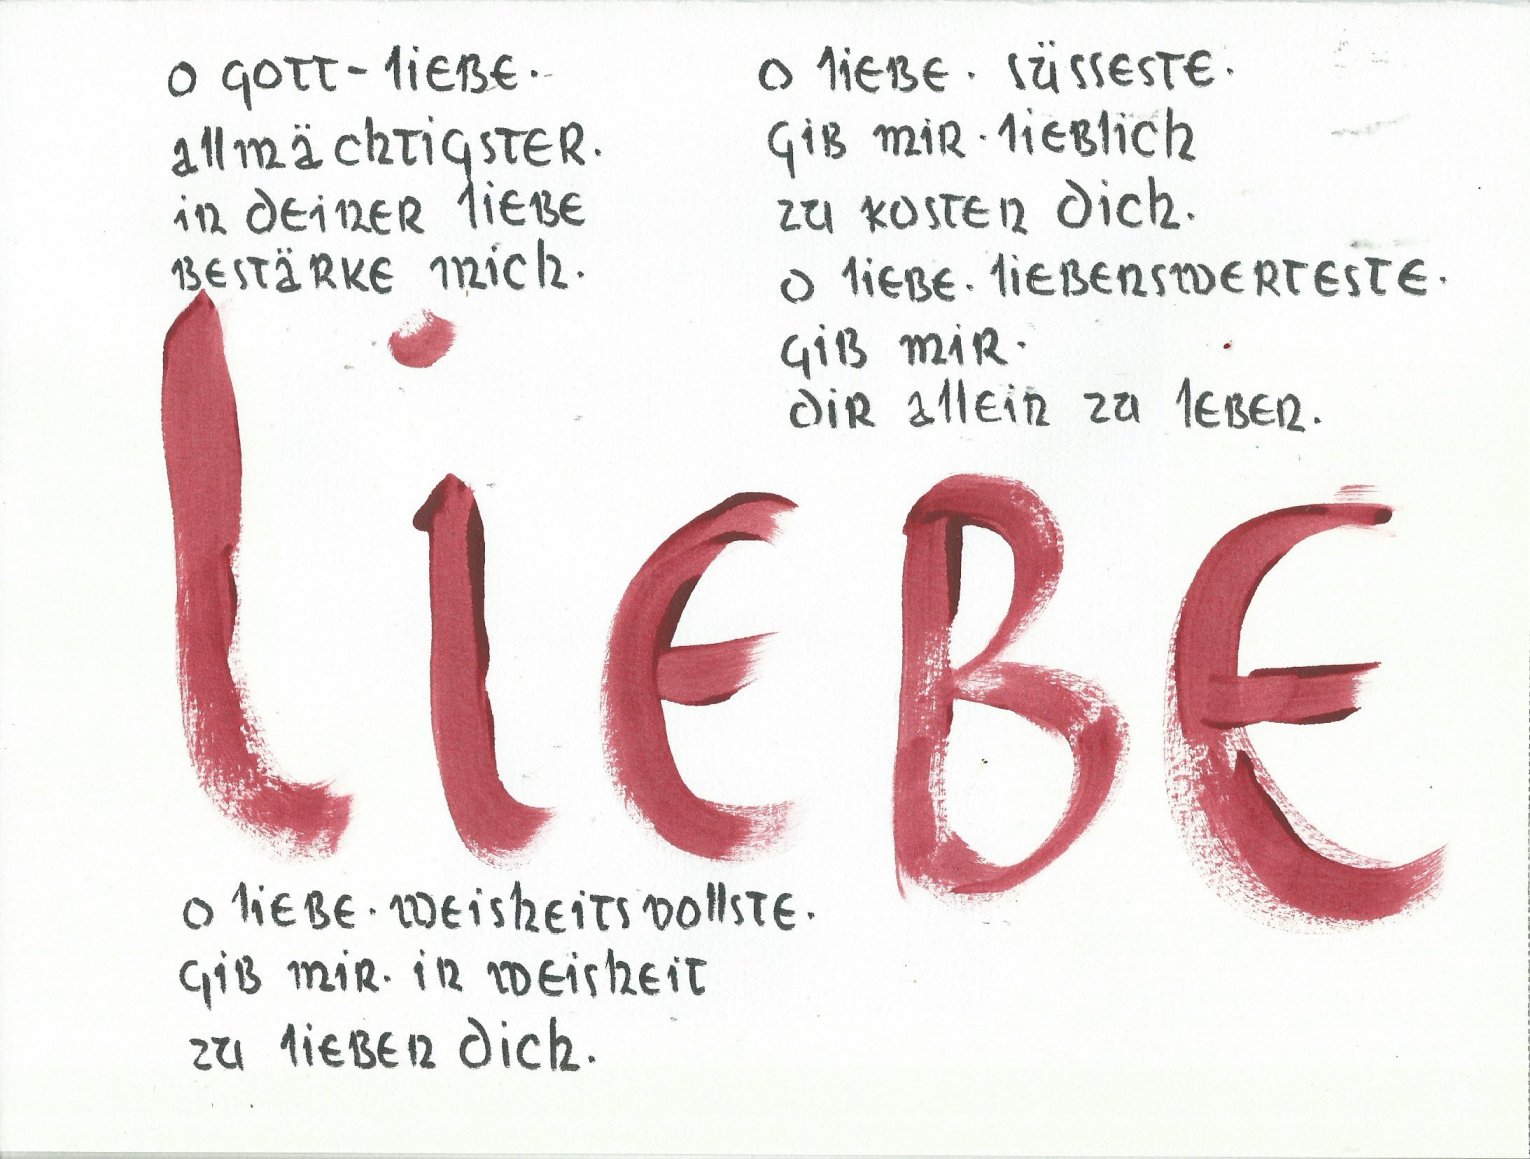 o GOTT-liEBE.
allmächTigSTER.
in dEinER liEBE
BESTäRKE mich.
o liEBE. weisheitsvollste.
GiB miR. in weisheit
zu liEBEn dich.
o liEBE. süssesTE.
GiB miR. liEBlich
zu KOSTEn dich.
o liEBE. liEBEnswERTESTE.
GiB miR.
diR allEin zu lEBEn.
liEBE